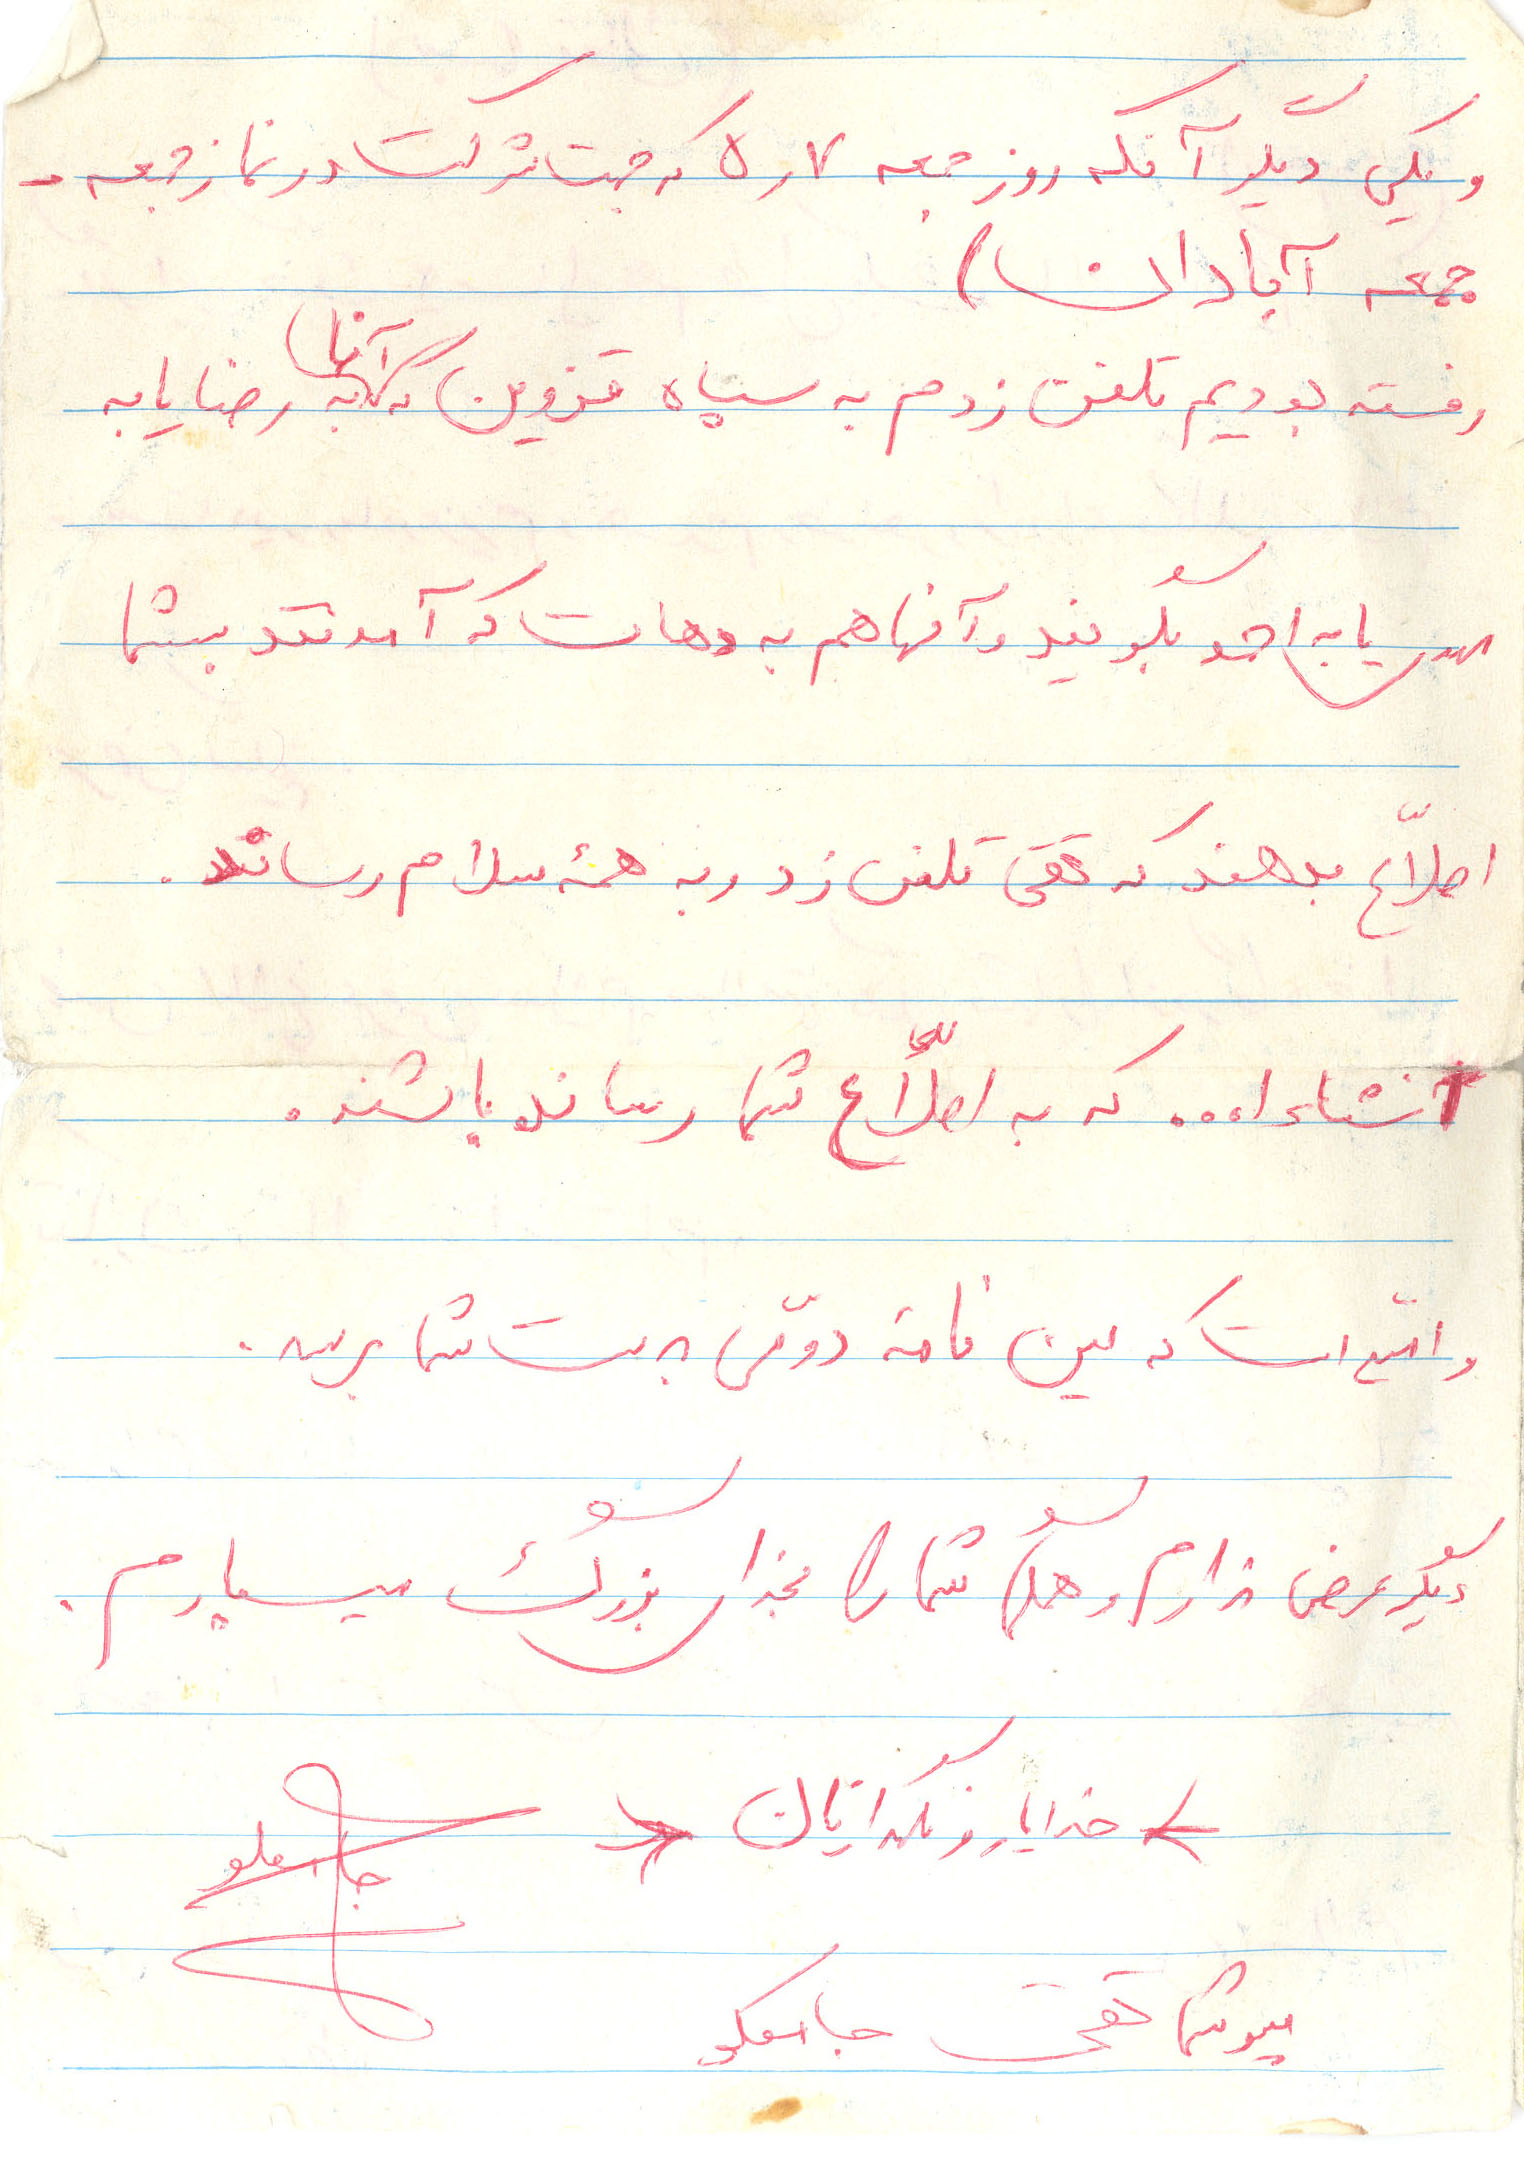 ویکی دیگر آنکه روز جمعه ۷ر۵ که جهت شرکت در نماز جمعه -
جمعه آبادان)
رفته بودیم تلفن زدم به سپاه قزوین که آنها به رضا یا به
یا به احمد بگویند و آنها هم به دهات که آمدند بشما
اطلاّع بدهند که تقی تلفن زد و به همهٔ سلام رساند.
انشاءا... که به اطلاّع شما رسانده باشند.
و است که این نامهٔ دوّمی بدست شما برسد.
دیگر عرضی ندارم و همگی شما را بخدای بزرگ میسپارم.
خدایار و نگهدارتان
جانعلو
پسر شما تقی جانعلو